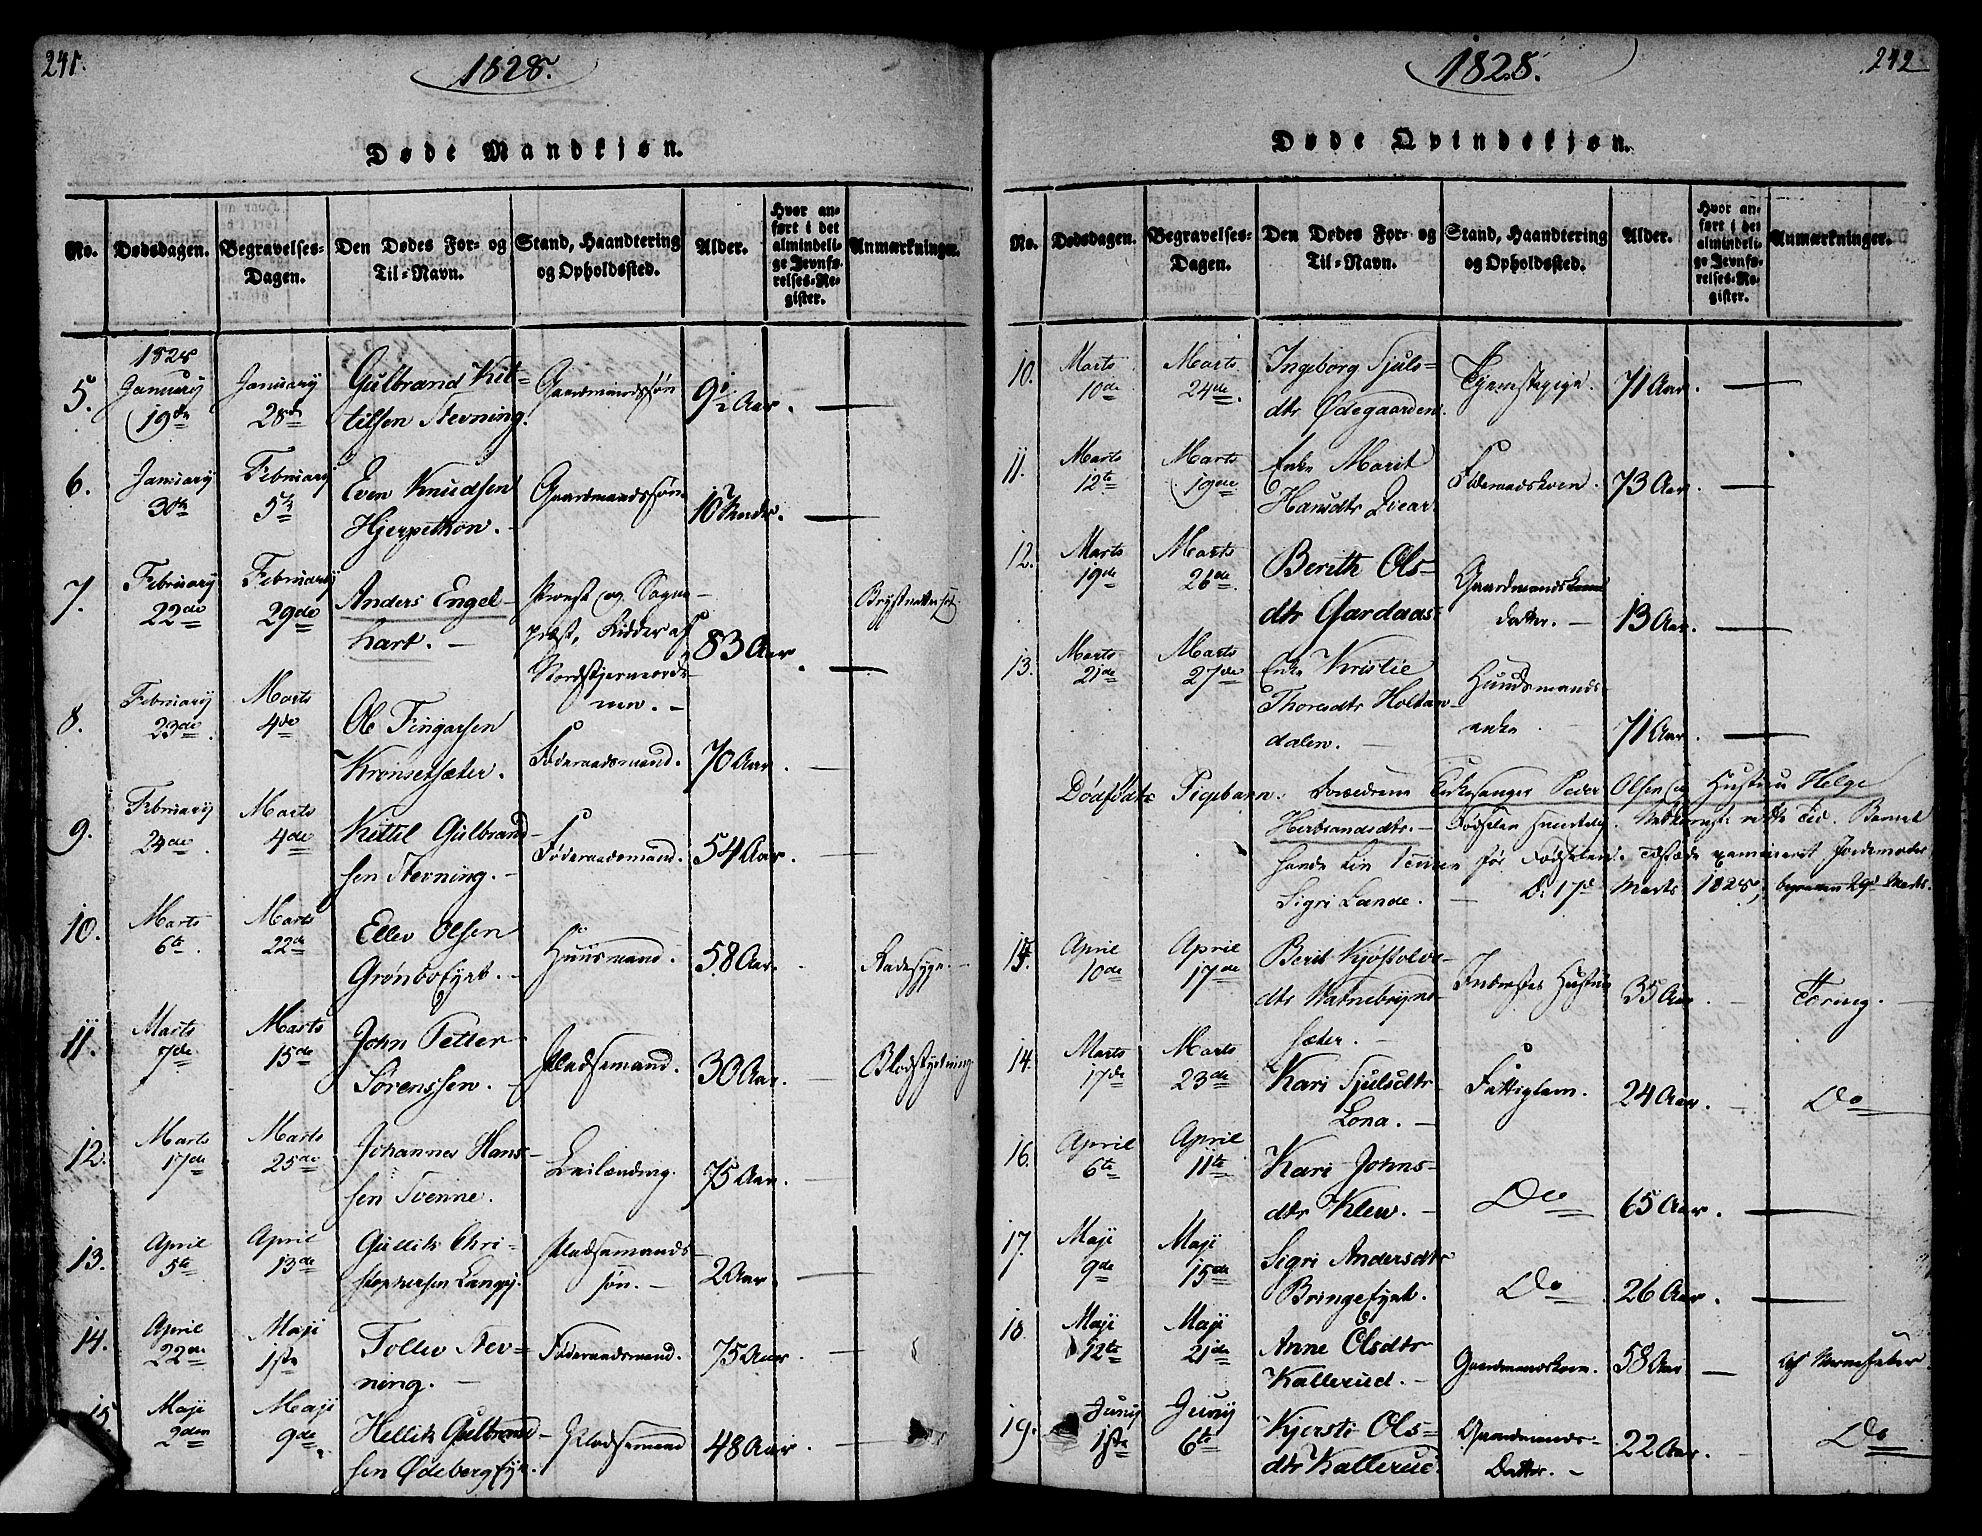 241.
1828.
Døde Mandkjøn.
No.
Dødsdagen.
Begravelses-
Dagen.
Den Dødes For- og
Til-Navn.
Stand, Haandtering
og Opholdssted.
Alder.
Hvor an-
ført i det
almindeli-
ge Jevnfø-
relses-Re-
gister.
Anmærkninger.
1828
5.
Januarÿ
19de
Januarÿ
28de
Gulbrand Kit-
tilsen Nevning.
Gaardmandssøn
9½ Aar.
6.
Januarÿ
30te
Februarÿ
5te
Even Knudsen
Hjerpetkon.
Gaardmandssøn.
7.
Februarÿ
22de
Februarÿ
29de
Anders Engel-
hart.
Provst og Sogne-
præst, Ridder af
Nordstjerneorde-
nen.
83 Aar.
8.
Februarÿ
23de
Marts
4de
Ole Fingarsen
Kronsetsæter.
Føderaadsmand.
70 Aar.
9.
Februarÿ
24de
Marts
4de
Kittil Gulbrand-
sen Nevning.
Føderaadsmand.
54 Aar.
10.
Marts
6te
Marts
22de
Ellev Olsen
Grønbofeyet.
Huusmand.
58 Aar.
Radesyge.
11.
Marts
7de
Marts
15de
John Petter
Sørenssen.
Pladsemand.
30 Aar.
Blodstyrtning
12.
Marts
17de
Marts
25de
Johannes Hans-
sen Tvenne.
Leilænding.
75 Aar.
13.
April
5te
April
13de
Gullik Chri-
stophersen
Pladsemands-
søn.
2 Aar.
14.
April
22de
Maji
1ste
Tollev Nev-
ning.
Føderaadsmand.
75 Aar
15
Maji
2den
Maji
9de
Hellik Gulbrand-
sen
Pladsemand
48 Aar.
242
1828.
Døde Qvindekjøn.
No.
Dødsdagen.
Begravelses-
Dagen.
Den Dødes For- og
Til-Navn.
Stand, Haandtering
og Opholdssted.
Alder.
Hvor an-
ført i det
almindeli-
ge Jevnfø-
relses-Re-
gister.
Anmærkninger.
10.
Marts
10de
Marts
24de
Ingeborg Sjuls-
dtr Ødegaarden.
Tjenestepige.
71 Aar.
11.
Marts
12te
Marts
19de
Enke Marit
Hansdtr
Føderaadskone.
73 Aar.
12.
Marts
19de
Marts
26de
Berith Ols-
dtr Gardaas.
Gaardmands
datter.
13 Aar.
13.
Marts
21de
Marts
27de
Enke Kristie
Thorsdtr Holtan-
dalen.
Huusmands-
enke
71 Aar.
Dødfødte Pigebarn. Forældrene Kirkesanger Peder Olsen og Hustru Helge
Herbrandsdtr. Fødselen
før Fødselen. examineret Jordemoder
Sigri Lande. D. 17de Marts 1828, begraven 29de Marts.
15.
April
10de
April
17de
Berit Kjøstolvs-
dtr Vatnebryns-
sæter.
Inderstes Hustru
35 Aar
Tæring.
14.
Marts
17de
Marts
23de
Kari Sjulsdtr
Lona.
Fattiglem.
24 Aar.
Do
16.
April
6te
April
11te
Kari Johns-
dtr Klev.
Do
65 Aar.
17.
Maji
9de
Maji
15de
Sigri Andersdtr
Bringefeyet.
Do
26 Aar.
18
Maji
12te
Maji
21de
Anne Olsdtr
Kallerud.
Gaardmandskone.
58 Aar
Af Nervefeber
19.
Junÿ
1ste
Junÿ
6te
Kjersti Ols-
dtr Kallerud.
Gaardmands-
Datter.
22 Aar.
Do